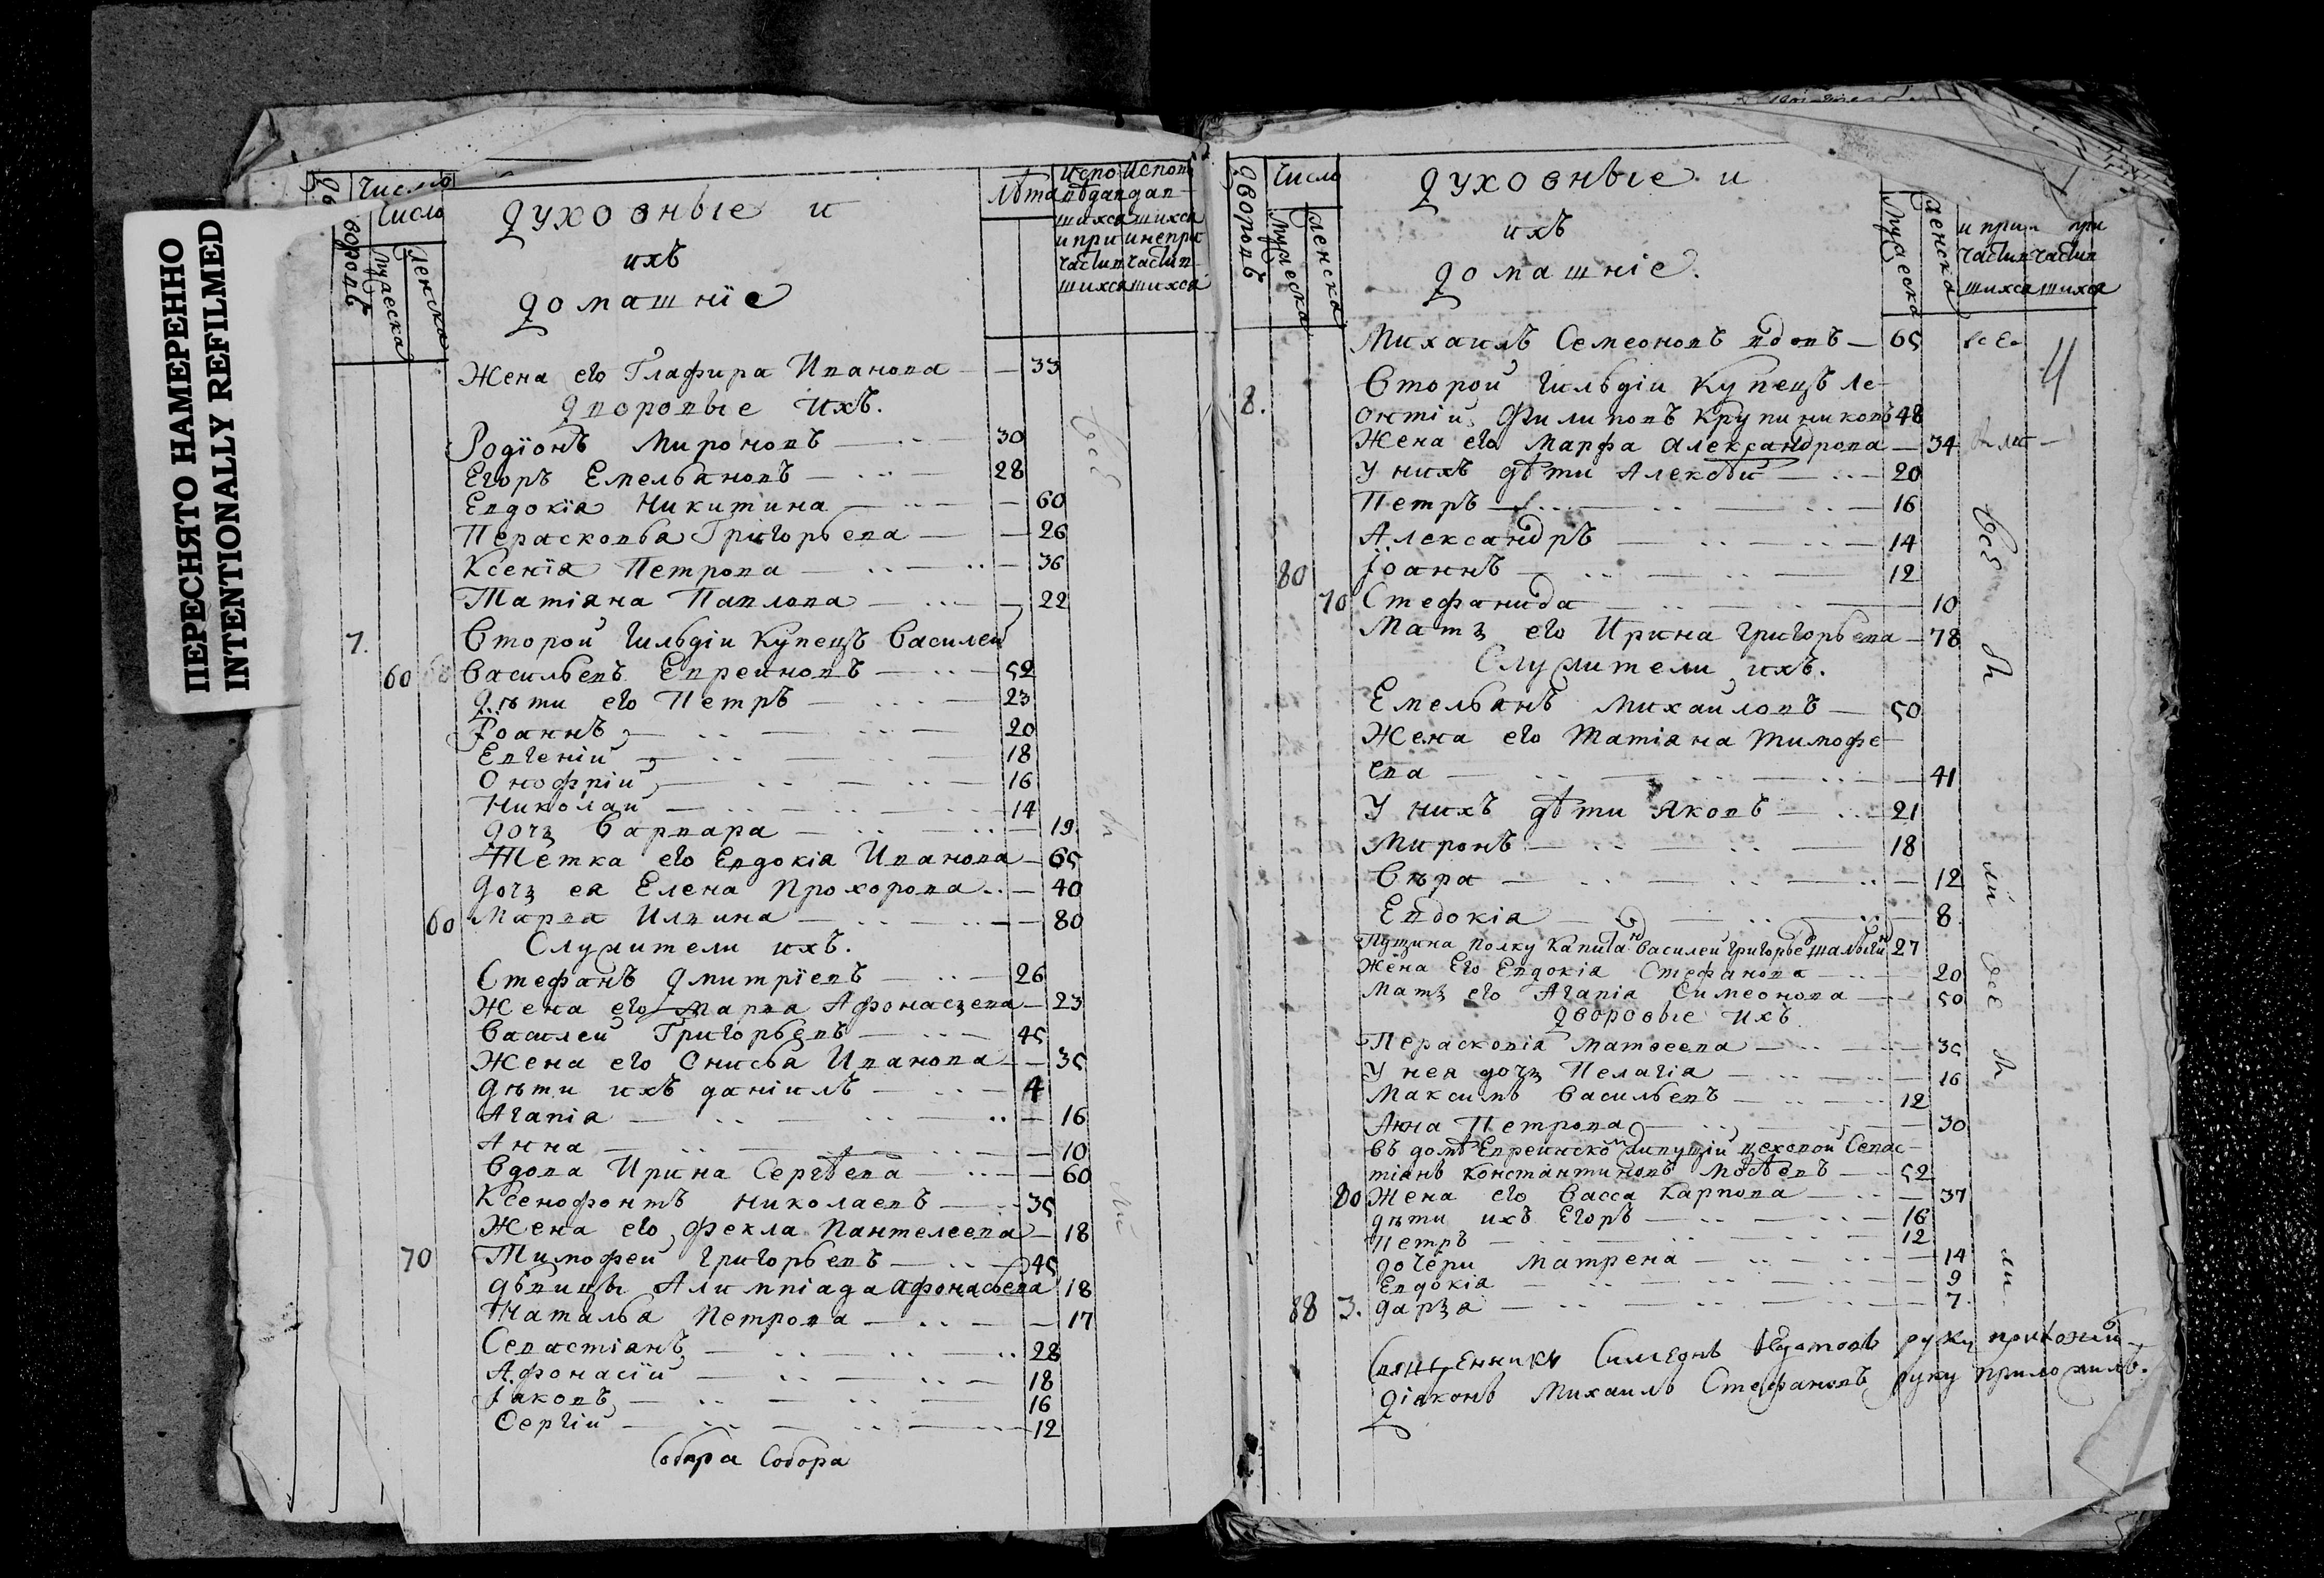 ПЕРЕСНЯТО НАМЕРЕННО
INTENTIONALLY REFILMED
Число
Число
дворовъ
мужеска
женска
Духовные и
ихъ
домашніе
Лѣта
шихся шихся
и при и непри
частив частив
шихся шихся
Жена его Глафира Иванова 33
Дворовые ихъ.
Родіонъ Мироновъ 30
Егоръ Емельяновъ 28
Евдокія Никитина 60
Перасковья Григорьева 26
Ксенія Петрова 36
Татіяна Павлова 22
7. Второй гильдіи купецъ Василей
60 Васильевъ Евреиновъ 52
Дѣти его Петръ 23
Іоаннъ 20
Евгеній 18
Онофрій 16
Николай 14
Дочь Варвара 19
Тетка его Евдокія Иванова 65
Дочь ея Елена Прохорова 40
60 Марѳа Ильина 80
Служители ихъ.
Стефанъ Дмитріевъ 26
Жена его Марѳа Афонасьева 23
Василей Григорьевъ 45
Жена его Онисья Иванова 35
Дѣти ихъ Даніилъ 4
Агапія 16
Анна 10
Вдова Ирина Сергѣева 60
Ксенофонтъ Николаевъ 35
Жена его Фекла Пантелеева 18
70 Тимофей Григорьевъ 45
Дѣвицы Алимпіада Афонасьева 18
Наталья Петрова 17
Севастіянъ 28
Афонасій 18
Іаковъ 16
Сергій 12
Собора
Дворовъ
Число
мужеска
женска
Духовные и
ихъ
домашніе.
мужеска
женска
и при при
частив частив
шихся шихся
4
Михаилъ Семеоновъ вдовъ 65
8. Второй гильдіи купецъ Ле-
онтій Филиповъ Крупениковъ 48
Жена его Марфа Александрова 34
У нихъ дѣти Алексѣй 20
Петръ 16
Александръ 14
80 Іоаннъ 12
70 Стефанида 10
Мать его Ирина Григорьева 78
Служители ихъ.
Емельянъ Михаиловъ 50
Жена его Татіяна Тимофе-
ева 41
У нихъ дѣти Яковъ 21
Миронъ 18
Вѣра 12
Евдокія 8
полку капитан Василей Григорьев 27
Жена его Евдокія Стефанова 20
Мать его Агапія Симеонова 50
Дворовые ихъ
Перасковія Матвеева 35
У нея дочь Пелагія 16
Максимъ Васильевъ 12
Анна Петрова 30
Въ домѣ живущій цеховой Севас-
тіянъ Константиновъ 52
80 Жена его Васса Карпова 37
Дѣти ихъ Егоръ 16
Петръ 12
Дочери Матрена 14
Евдокія 9
88 3. Дарья 7
Священникъ Симеонъ руку приложилъ
Діаконъ Михаилъ Стефановъ руку приложилъ.